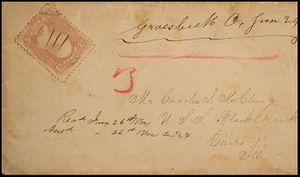 Groesbeck O, Jun 24
3
Mr Charles S. McClung
U S S Black Hawk
Cairo
Ills.
Recd June 26th
Ansd " 26th